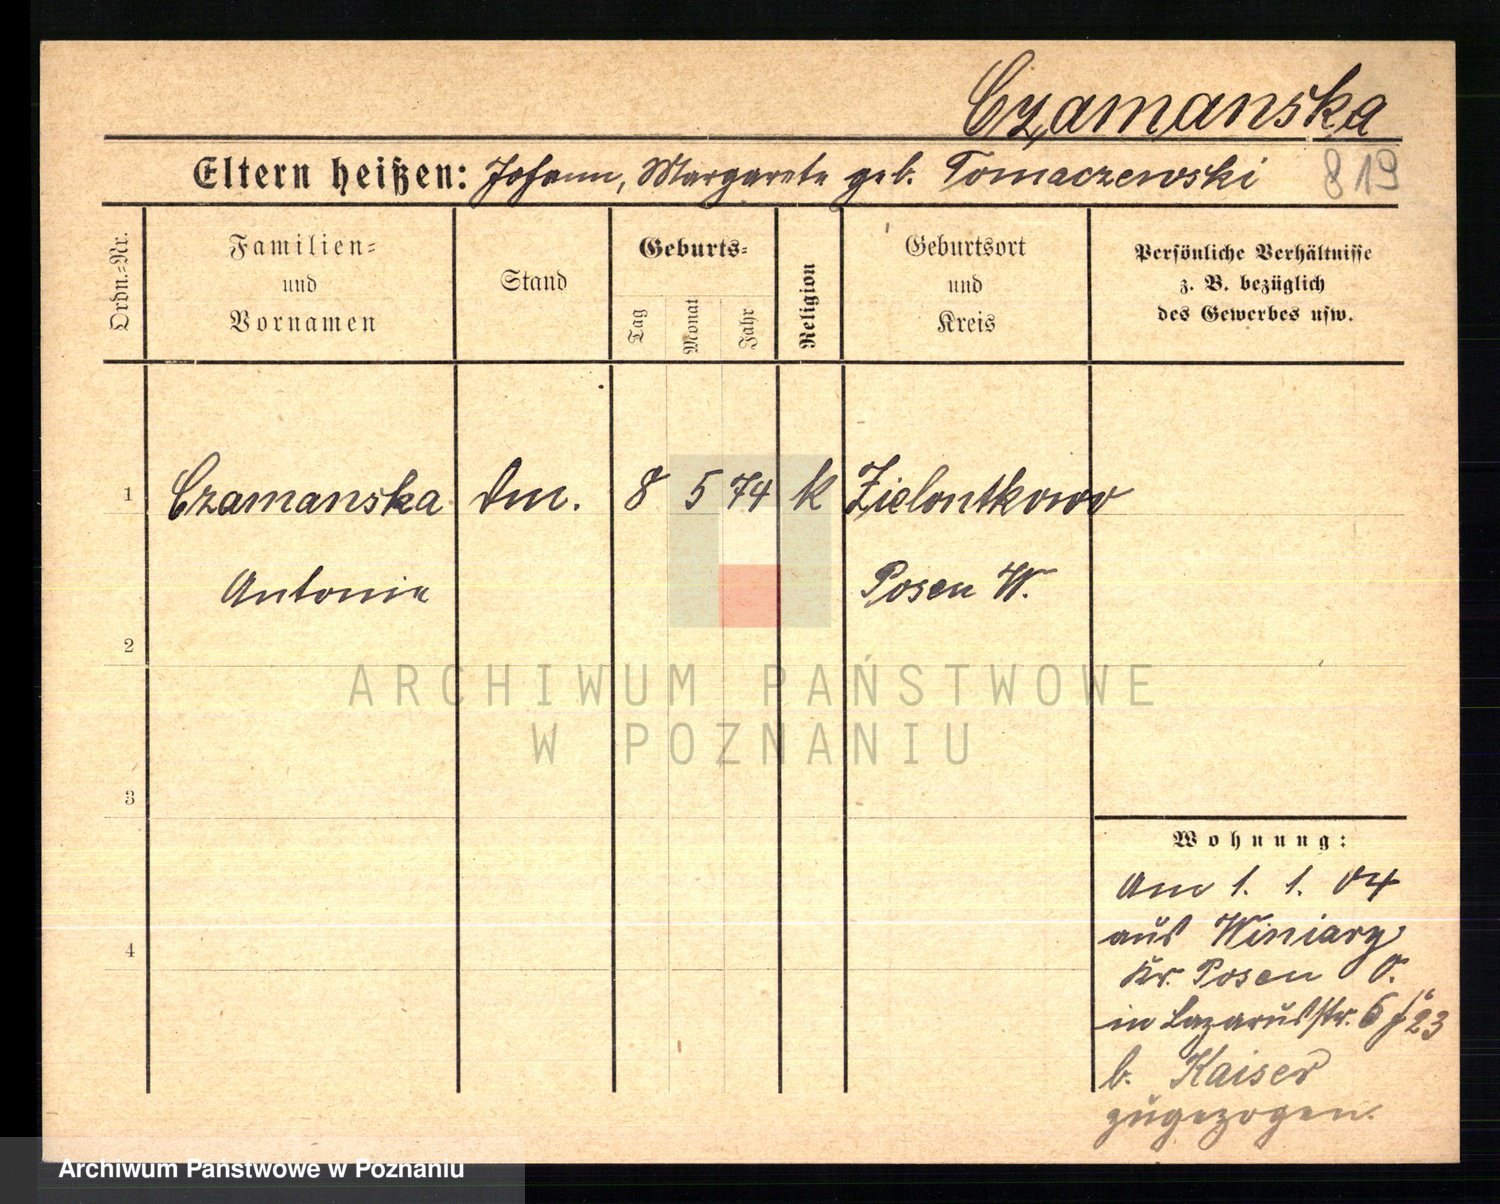 Czamanska
Eltern heißen: Johann, Margarete geb. Tomaczewski 819
Ordn.=Nr.
Familien=
und
Vornamen
Stand
Geburts=
Tag
Monat
Jahr
Religion
Geburtsort
und
Kreis
Persönliche Verhältnisse
z. B. bezüglich
des Gewerbes usw.
1 Czamanska 8 5 74 k Zielontkowo
Antonie Posen W.
2
ARCHIWUM PAŃSTWOWE
W POZNANIU
3
Wohnung:
Am 1. 1. 04
aus Winiary
4
Kr. Posen O.
in Lazarusstr. 6
b. Kaiser
zugezogen.
Archiwum Państwowe w Poznaniu